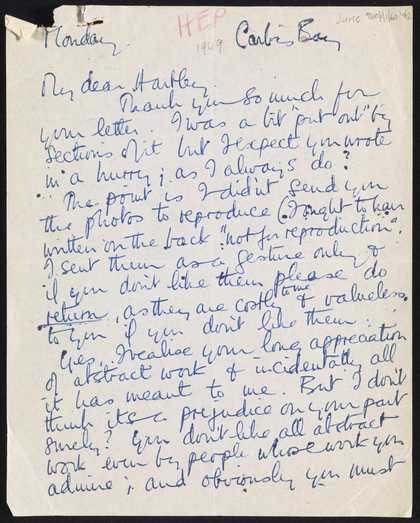 HEP
1949
Monday
Carbis Bay
My dear Hartley
Thank you so much for
your letter. I was a bit "put out" by
sections of it but I expect you wrote
in a hurry; as I always do?
The point is I didn't send you
the photos to reproduce (I ought to have
written on the back "not for reproduction".
I sent them as a gesture only &
if you don't like them please do
return, as they are costly to me & valueless
to you if you don't like them.
Yes, I realise your long appreciation
of abstract work & incidentally all
it has meant to me. But I don't
think its a prejudice on your part
surely? You don't like all abstract
work even by people whose work you
admire; and obviously you must